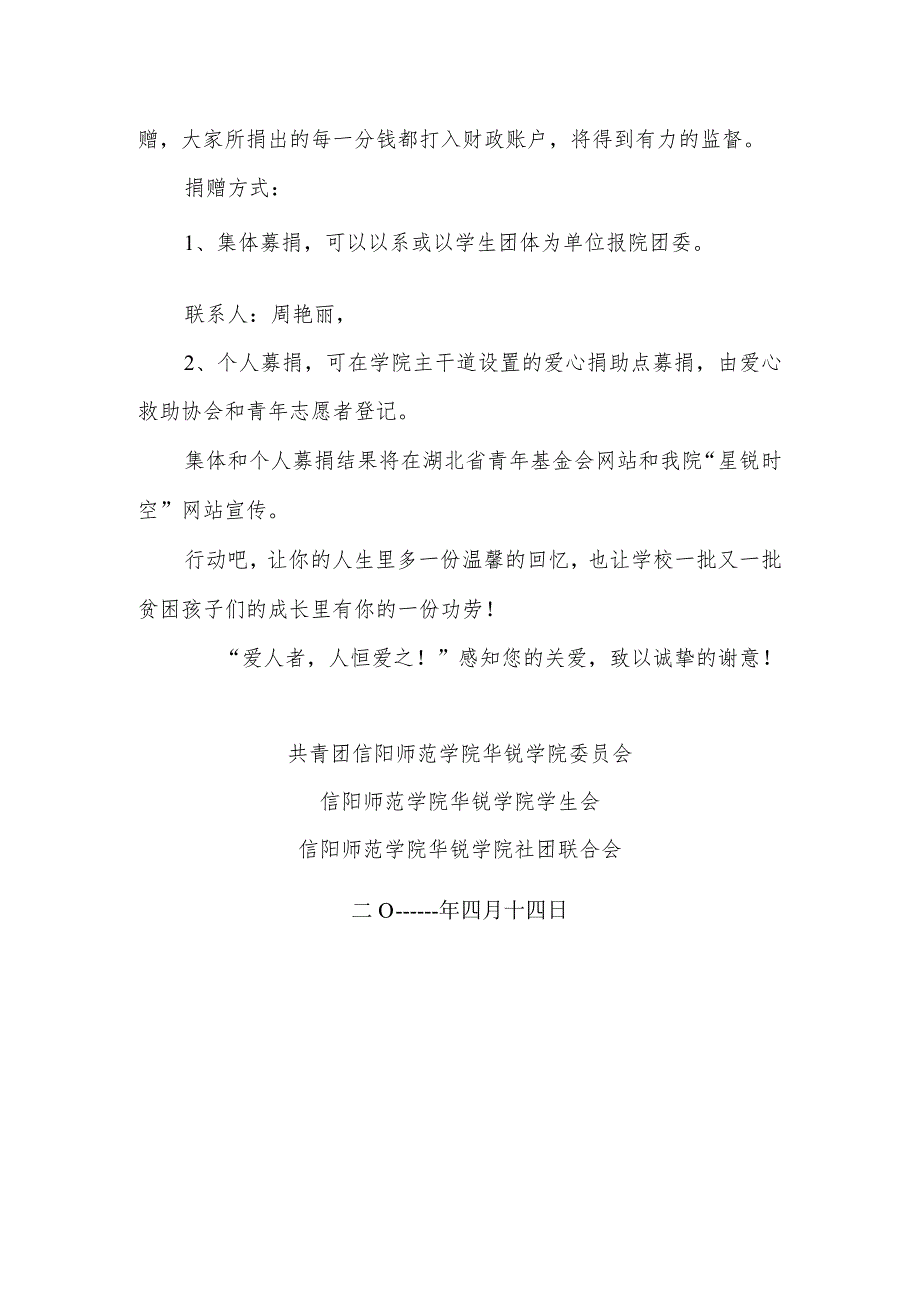 赠，大家所捐出的每一分钱都打入财政账户，将得到有力的监督。
捐赠方式：
1、集体募捐，可以以系或以学生团体为单位报院团委。
联系人：周艳丽，
2、个人募捐，可在学院主干道设置的爱心捐助点募捐，由爱心
救助协会和青年志愿者登记。
集体和个人募捐结果将在湖北省青年基金会网站和我院“星锐时
空”网站宣传。
行动吧，让你的人生里多一份温馨的回忆，也让学校一批又一批
贫困孩子们的成长里有你的一份功劳！
“爱人者，人恒爱之！”感知您的关爱，致以诚挚的谢意！
共青团信阳师范学院华锐学院委员会
信阳师范学院华锐学院学生会
信阳师范学院华锐学院社团联合会
二 O------年四月十四日